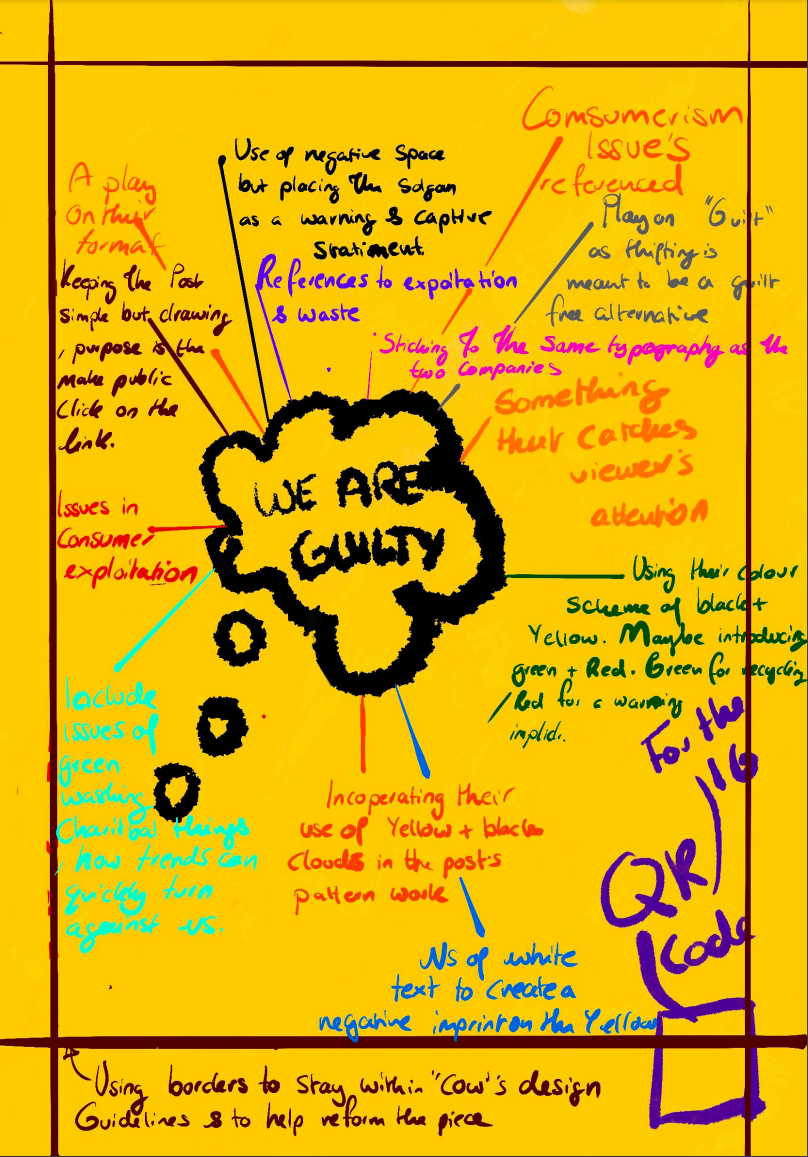 Comsumerism
Issue's
referenced
Use of negative space
but placing the Solgan
as a warning & captive
Stratiment.
A play
On their
format
Play on "Guilt"
as thifting is
meant to be a guilt
free alternative
Keeping the Post
simple but drawing
, purpose is the
make public
Click on the
link.
References to expoitation
& waste
Sticking To the Same typography as the
two Companies
Something
that Catches
viewer's
attention
WE ARE
GUILTY
Issues in
Consumer
exploitation
Using their colour
Scheme of black +
Yellow. Maybe introducing
green + Red. Green for recycling
Red for a warning
Include
issues of
green
washing
Charitbal things
, how trends can
quickly turn
against us.
For the
QR
Code
Incoperating their
use of Yellow + black
Clouds in the post's
pattern work
of white
text to Create a
negative imprint on the Yellow
Using borders to stay within "Cow"'s design
Guidelines & to help reform the piece